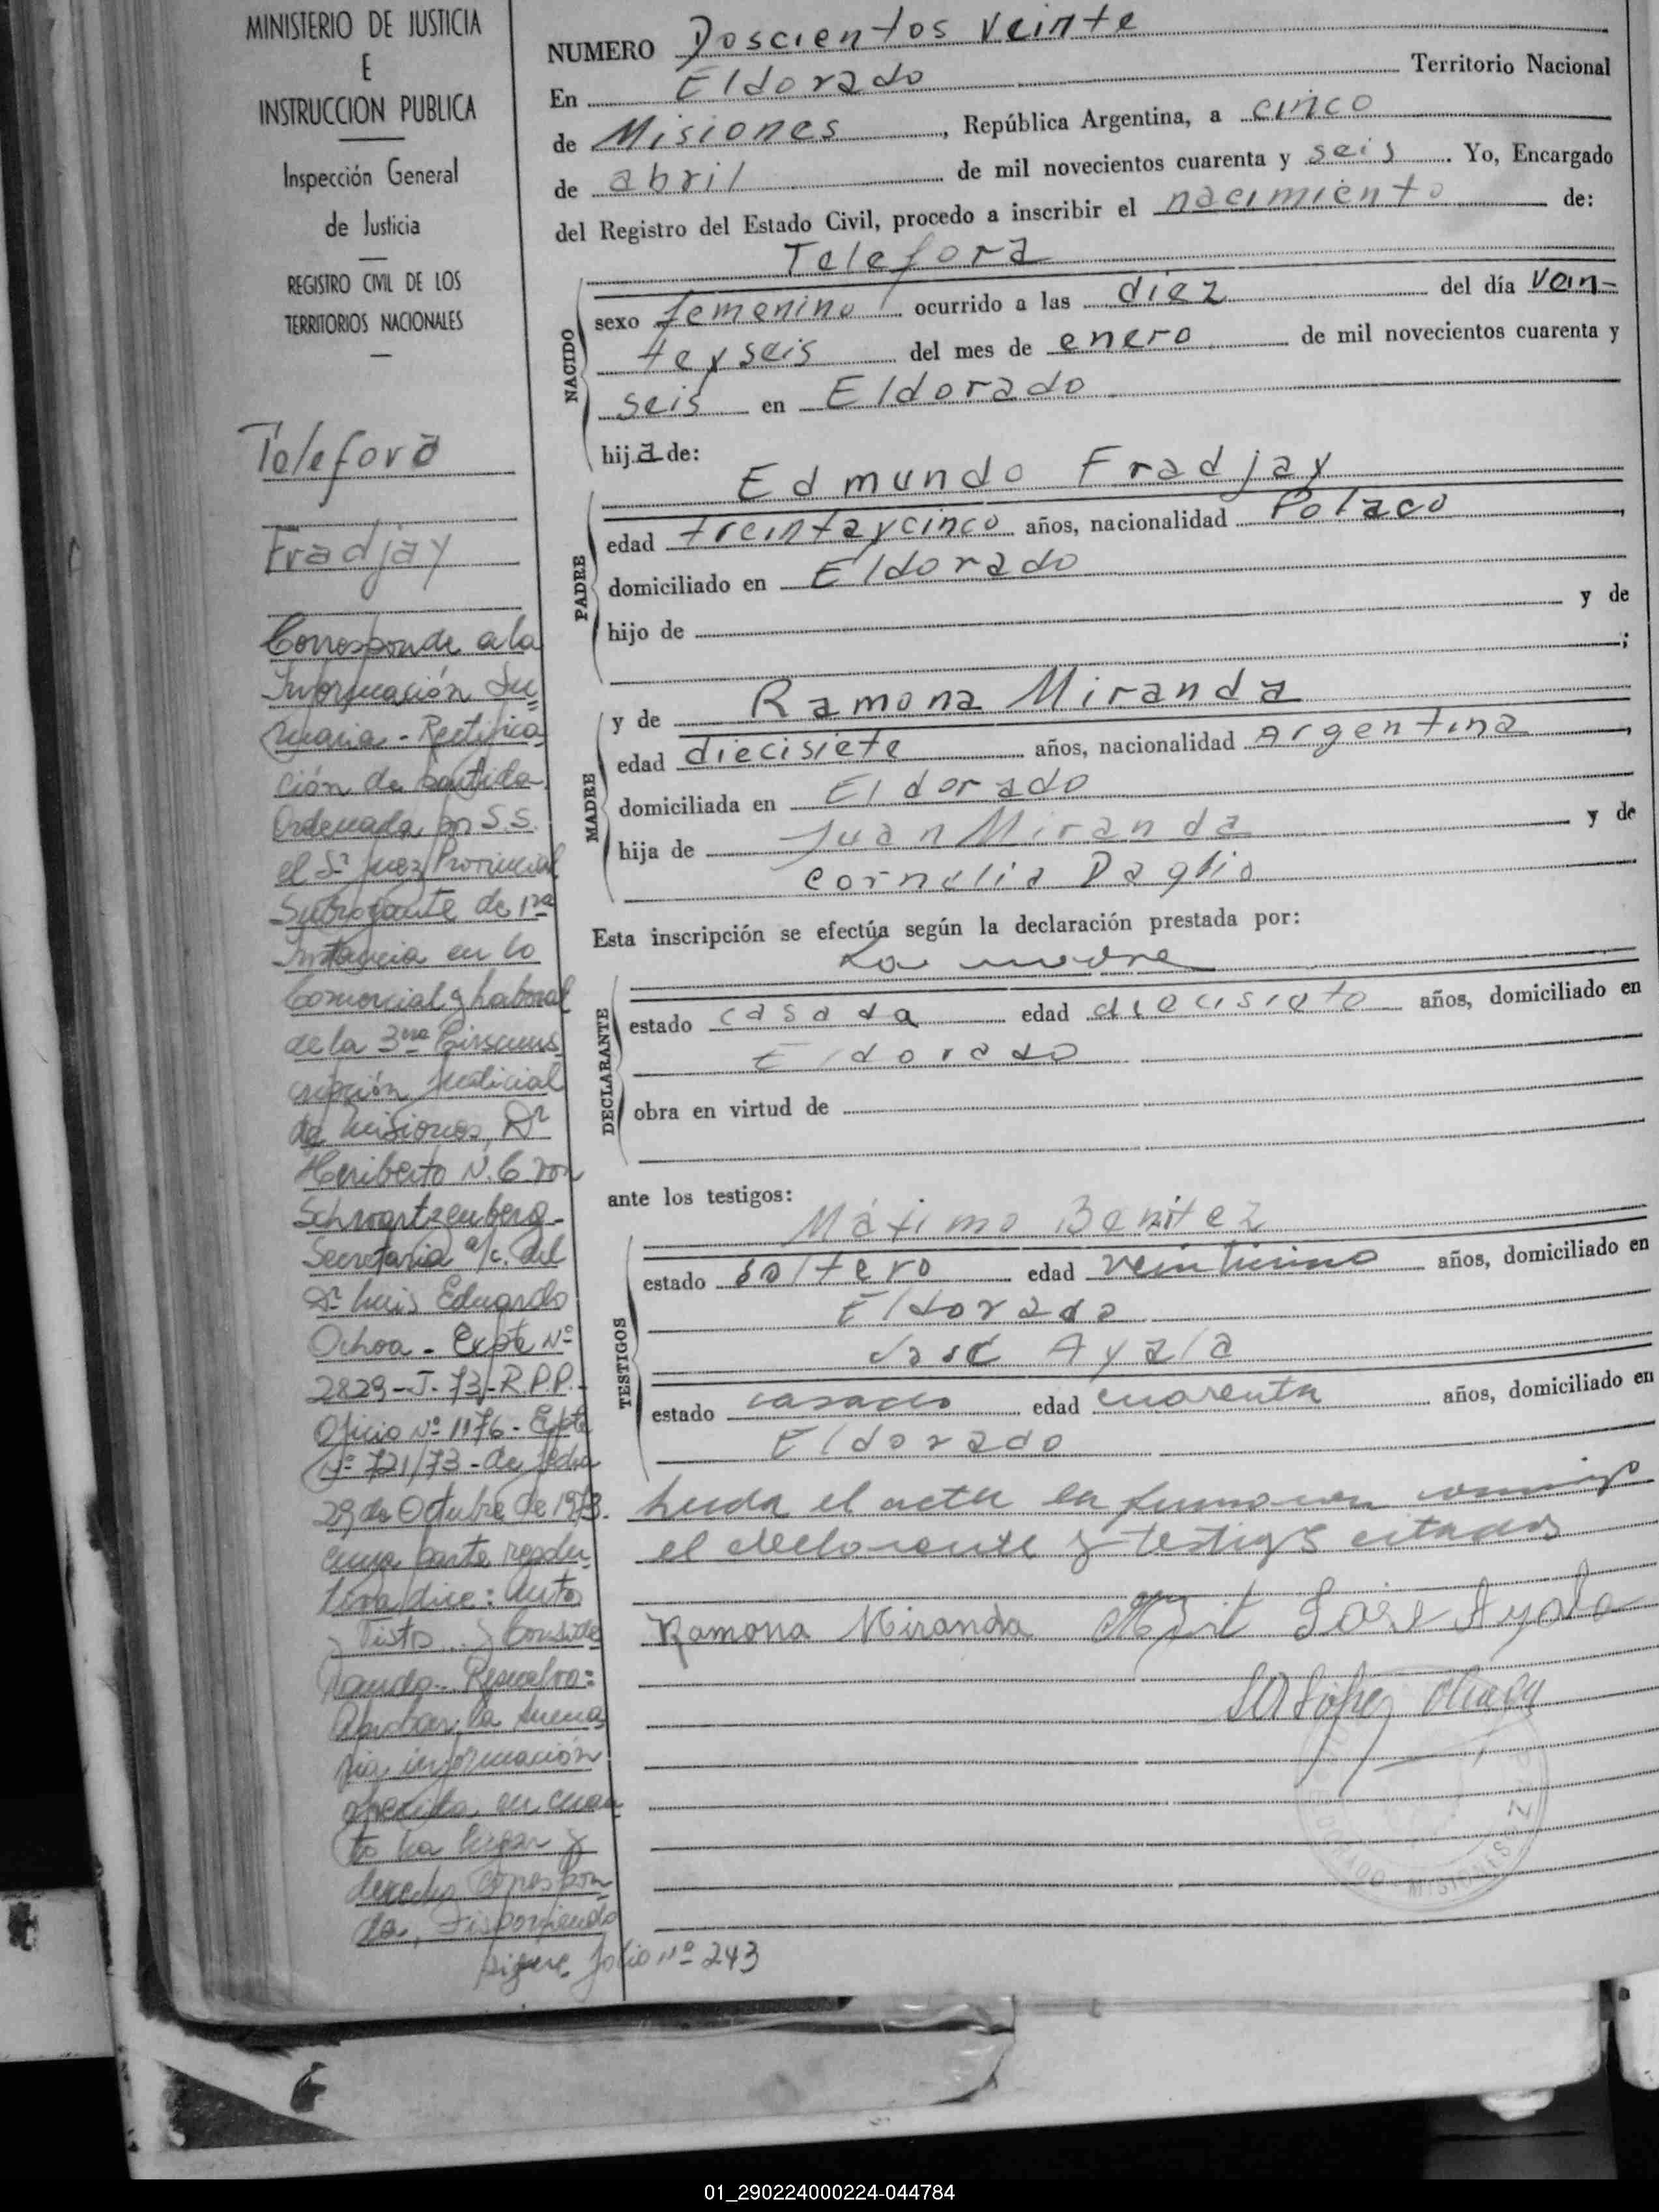 MINISTERIO DE JUSTICIA
E
INSTRUCCION PUBLICA
Inspección General
de Justicia
REGISTRO CIVIL DE LOS
TERRITORIOS NACIONALES
Telefora
Fradjay
Corresponde a la
Información Su=
maria - Rectifica
ción de partida
Ordenada por S.S.
el Sr Juez Provincial
Subrogante de 1ra
Instancia en lo
Comercial y Laboral
de la 3ra Circuns
cripción Judicial
de Misiones, Dr
Heriberto N. C. von
Schwartzenberg-
Secretaria a/c. del
Dr Luis Eduardo
Ochoa - Expte Nº
2829-J-73-R.P.P.-
Oficio Nº 1176 - Expte
Nº 721/73 - de fecha
29 de Octubre de 1973.
cuya parte resolu
tiva dice: Auto
y Visto... y Conside
rando... Resuelvo:
Aprobar la suma
ria información
ofrecida en cuan
to ha lugar y
derecho correspon=
da, Disponiendo
sigue folio nº 243
NUMERO Doscientos veinte
En Eldorado Territorio Nacional
de Misiones, República Argentina, a cinco
de abril de mil novecientos cuarenta y seis. Yo, Encargado
del Registro del Estado Civil, procedo a inscribir el nacimiento de:
Telefora
NACIDO
sexo femenino ocurrido a las diez del día vein-
teyseis del mes de enero de mil novecientos cuarenta y
seis en Eldorado
hija de:
Edmundo Fradjay
PADRE
edad treintaycinco años, nacionalidad Polaco,
domiciliado en Eldorado
hijo de y de
;
y de Ramona Miranda
MADRE
edad diecisiete años, nacionalidad Argentina,
domiciliada en Eldorado
hija de Juan Miranda y de
Cornelia Daglio
Esta inscripción se efectúa según la declaración prestada por:
La madre
DECLARANTE
estado casada edad diecisiete años, domiciliado en
Eldorado
obra en virtud de
ante los testigos:
Máximo Benitez
TESTIGOS
estado soltero edad veinticinco años, domiciliado en
Eldorado
José Ayala
estado casado edad cuarenta años, domiciliado en
Eldorado
Leida el acta la firmaron conmigo
el declarante y testigos citados
Ramona Miranda José Ayala
ELDORADO - MISIONES
01_290224000224-044784